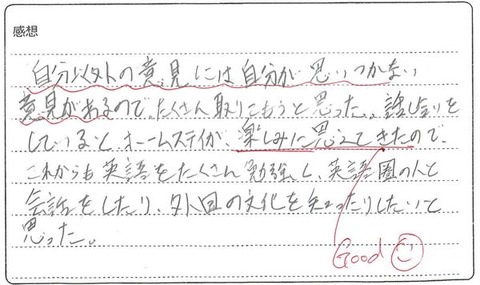 感想
自分以外の意見には自分が思いつかない
意見があるので、たくさん取りこもうと思った。話し合いを
していると、ホームステイが、楽しみに思えてきたので、
これからも英語をたくさん勉強し、英語圏の人と
会話をしたり、外国の文化を知ったりしたいと
思った。
Good